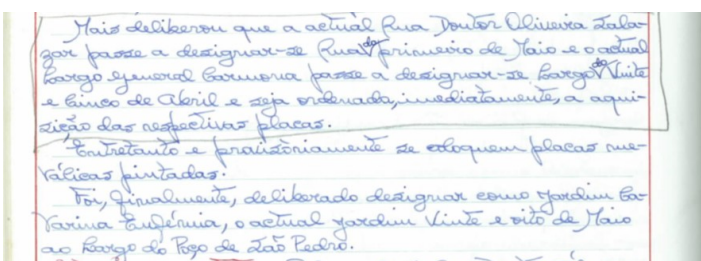 Mais deliberou que a actual Rua Doutor Oliveira Sala-
zar passe a designar-se Rua do primeiro de Maio e o actual
Largo general Carmona passe a designar-se Largo do Vinte
e Cinco de Abril e seja ordenada, imediatamente, a aqui-
sição das respectivas placas.
Entretanto e provisòriamente se coloquem placas me-
tálicas pintadas.
Foi, finalmente, deliberado designar como jardim Ca-
tarina Eufémia, o actual jardim Vinte e oito de Maio
ao Largo do Poço de São Pedro.